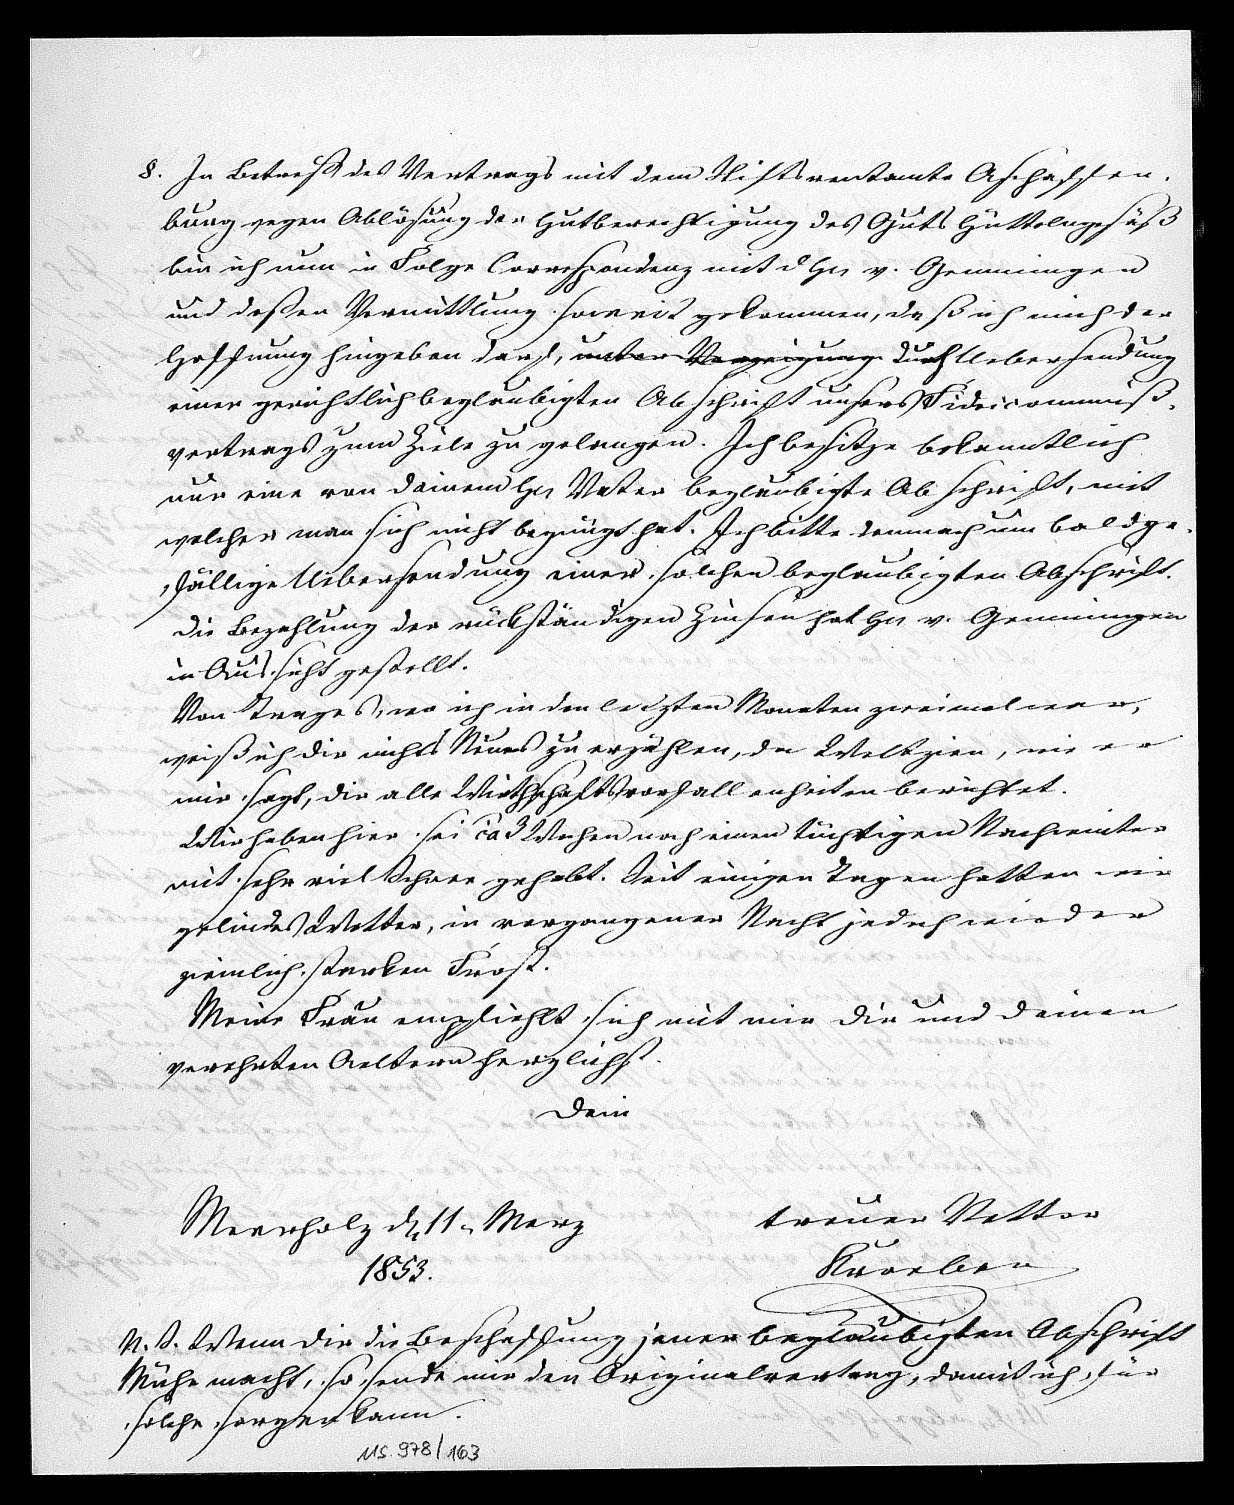 8. In Betreff des Vertrags mit dem Stiftsrentamte Aschaffen-
burg wegen Ablösung der Hutberechtigung des Guts Hüttelngesäß
bin ich nun in Folge Correspondenz mit d Hn v. Gemmingen
und deßen Vermittlung soweit gekommen, daß ich mich der
Hoffnung hingeben darf, unter Vorzeigung durch Uebersendung
einer gerichtlich beglaubigten Abschrift unsers Fideicommiß-
vertrags zum Ziele zu gelangen. Ich besitze bekanntlich
nur eine von deinem Hn Vater beglaubigte Abschrift, mit
welcher man sich nicht begnügt hat. Ich bitte demnach um baldge-
fällige Uebersendung einer solchen beglaubigten Abschrift.
Die Bezahlung der rückständigen Zinsen hat Hn v. Gemmingen
in Aussicht gestellt.
Von Trages, wo ich in den letzten Monaten zweimal war,
weiß ich dir nichts Neues zu erzählen, da Weltzien, wie er
mir sagt, dir alle Wirthschaftsvorfallenheiten berichtet.
Wir haben hier sei ca 3 Wochen noch einen tüchtigen Nachwinter
mit sehr viel Schnee gehabt. Seit einigen Tagen hatten wir
gelindes Wetter, in vergangener Nacht jedoch wieder
ziemlich starken Frost.
Meine Frau empfiehlt sich mit mir dir und deinen
verehrten Aeltern herzlichst.
Dein
Meerholz d 11n Merz
1853.
treuer Vetter
N. S. Wenn dir die Beschaffung jener beglaubigten Abschrift
Mühe macht, so sende mir den Originalvertrag, damit ich für
solche sorgen kann.
MS. 978/163